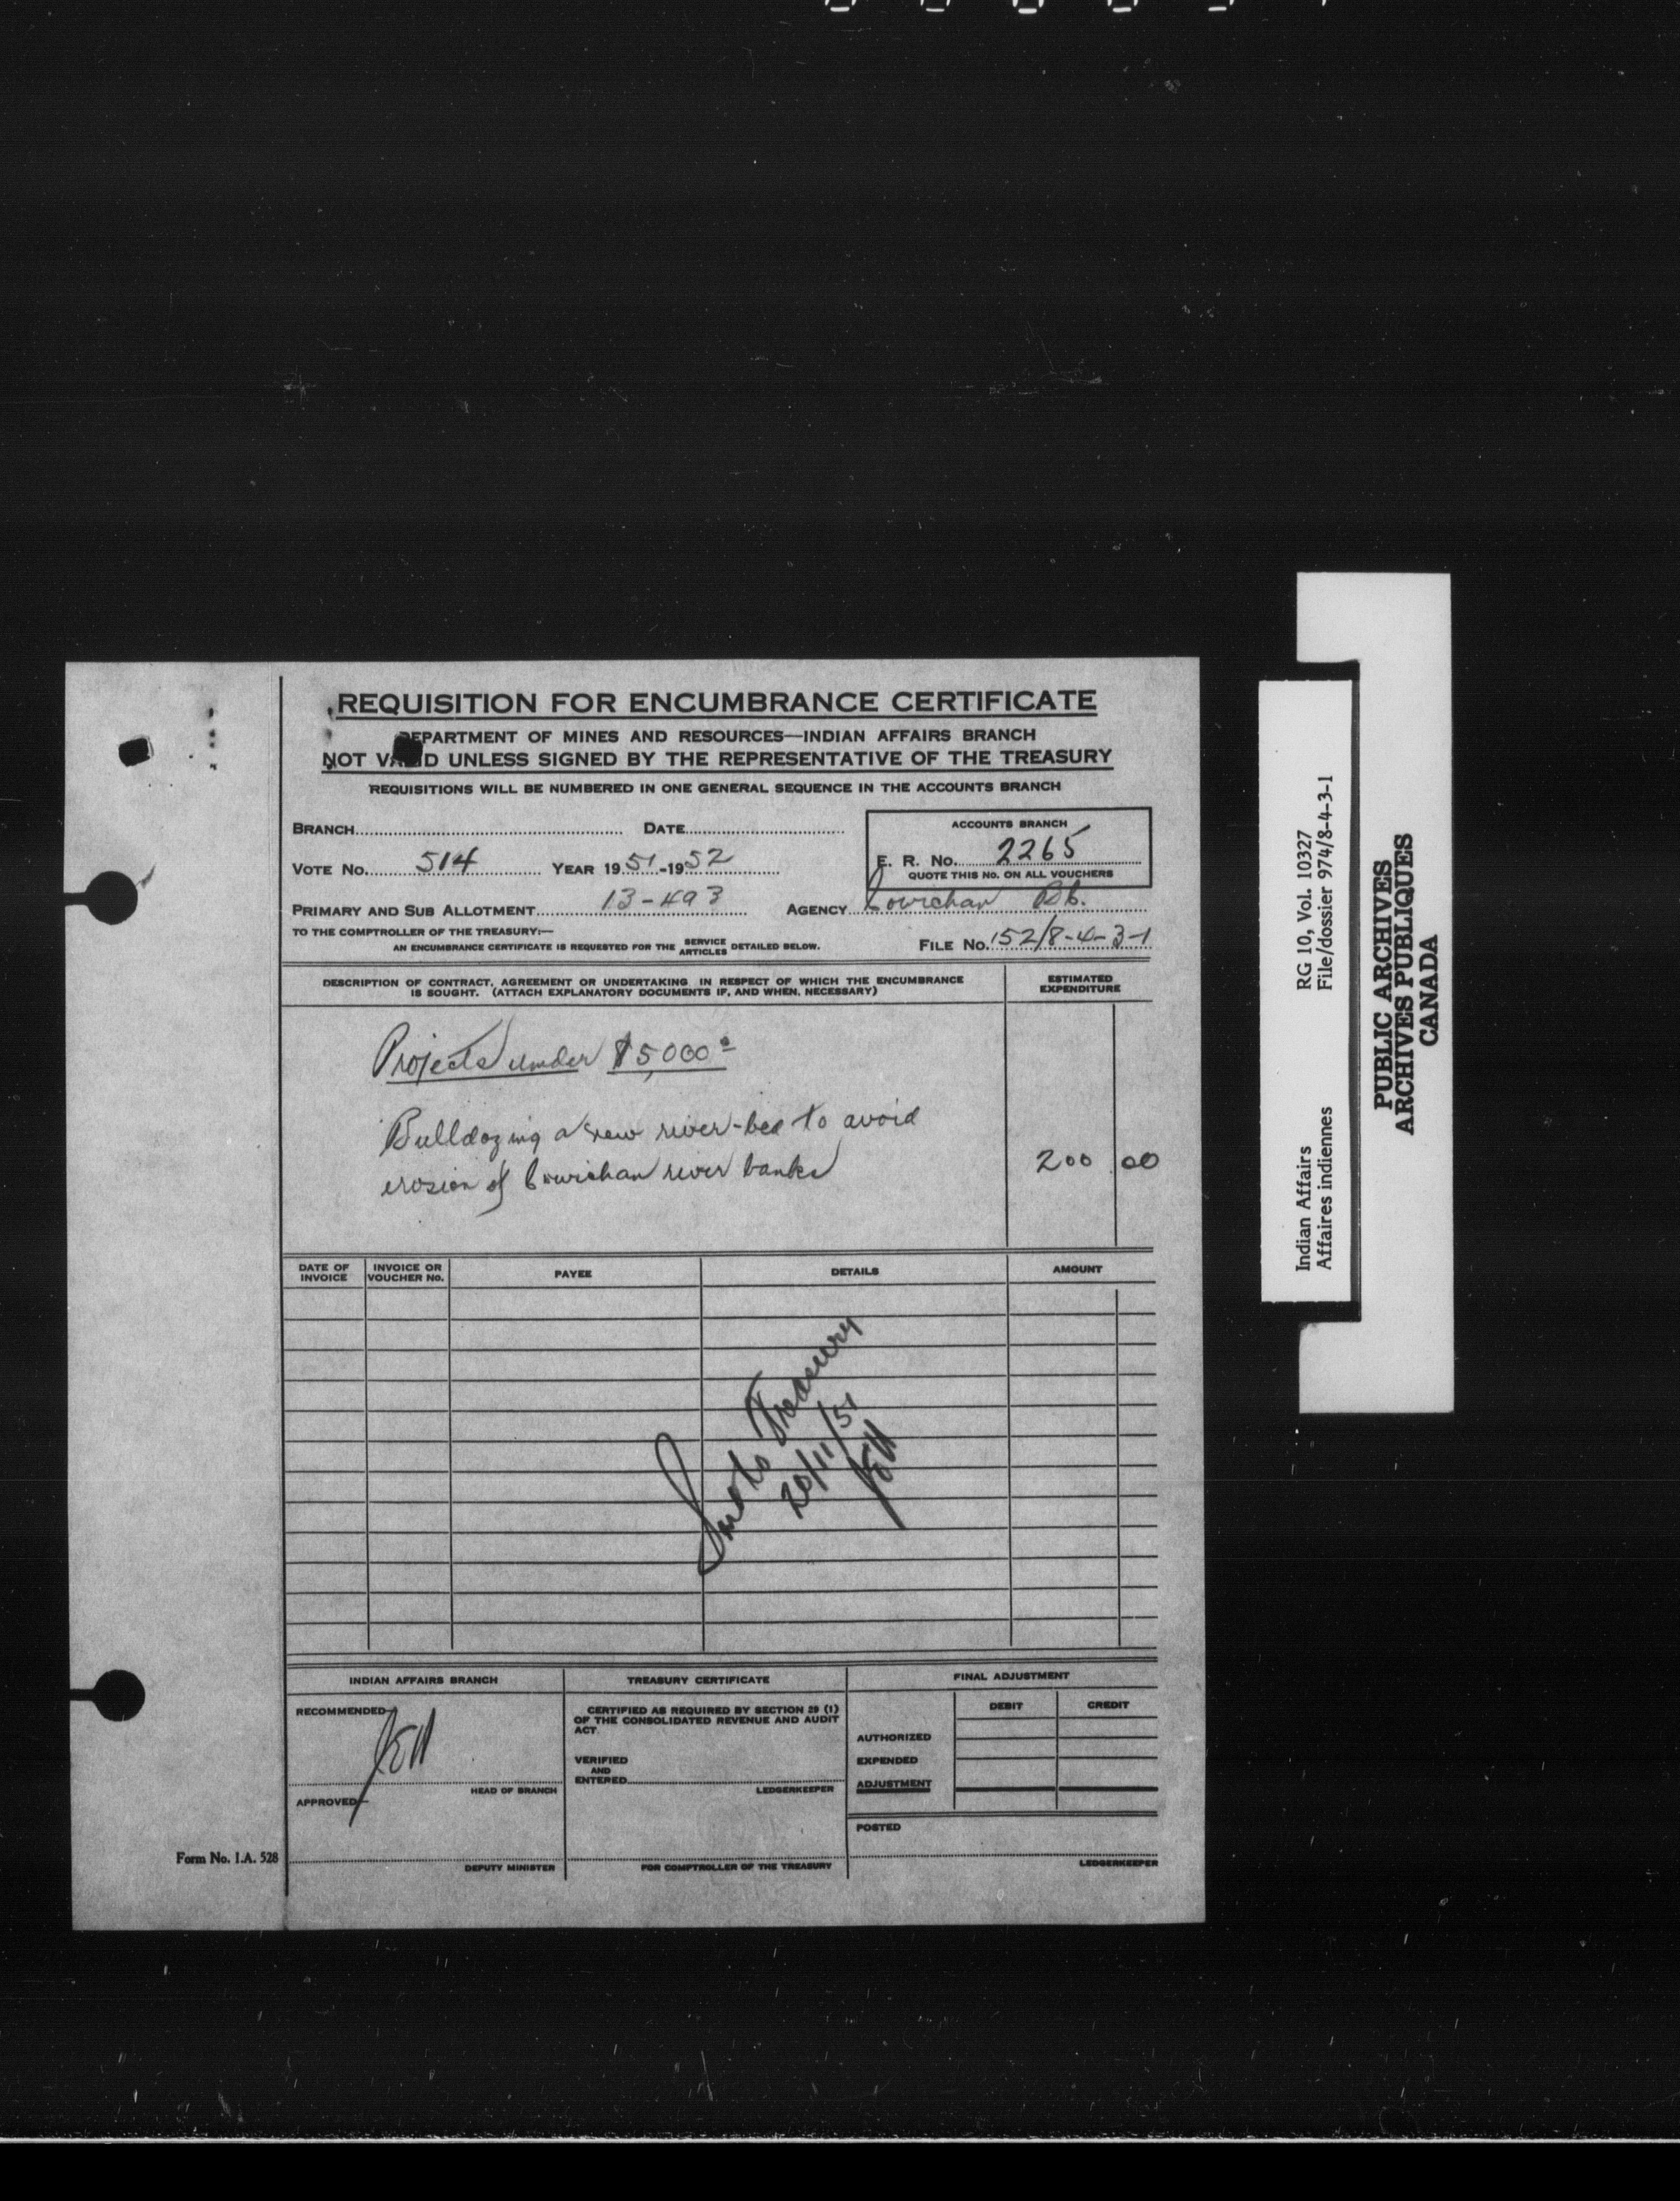 REQUISITION FOR ENCUMBRANCE CERTIFICATE
DEPARTMENT OF MINES AND RESOURCES—INDIAN AFFAIRS BRANCH
NOT VALID UNLESS SIGNED BY THE REPRESENTATIVE OF THE TREASURY
REQUISITIONS WILL BE NUMBERED IN ONE GENERAL SEQUENCE IN THE ACCOUNTS BRANCH
BRANCH DATE
ACCOUNTS BRANCH
VOTE No. 514 YEAR 1951-1952
E. R. No. 2265
QUOTE THIS No. ON ALL VOUCHERS
PRIMARY AND SUB ALLOTMENT 13-493 AGENCY Cowichan
TO THE COMPTROLLER OF THE TREASURY:—
AN ENCUMBRANCE CERTIFICATE IS REQUESTED FOR THE SERVICE ARTICLES DETAILED BELOW.
FILE No. 152/8-4-3-1
DESCRIPTION OF CONTRACT, AGREEMENT OR UNDERTAKING IN RESPECT OF WHICH THE ENCUMBRANCE
IS SOUGHT. (ATTACH EXPLANATORY DOCUMENTS IF, AND WHEN, NECESSARY)
ESTIMATED
EXPENDITURE
Projects under $5,000
Bulldozing a new river-bed to avoid
erosion of Cowichan river banks 200 00
DATE OF INVOICE INVOICE OR VOUCHER No. PAYEE DETAILS AMOUNT
Sent to Treasury
20/11/51
INDIAN AFFAIRS BRANCH
RECOMMENDED—
HEAD OF BRANCH
APPROVED—
DEPUTY MINISTER
TREASURY CERTIFICATE
CERTIFIED AS REQUIRED BY SECTION 29 (1)
OF THE CONSOLIDATED REVENUE AND AUDIT
ACT.
VERIFIED
AND
ENTERED
LEDGERKEEPER
FOR COMPTROLLER OF THE TREASURY
FINAL ADJUSTMENT
DEBIT CREDIT
AUTHORIZED
EXPENDED
ADJUSTMENT
POSTED
LEDGERKEEPER
Form No. I.A. 528
Indian Affairs RG 10, Vol. 10327
Affaires indiennes File/dossier 974/8-4-3-1
PUBLIC ARCHIVES
ARCHIVES PUBLIQUES
CANADA